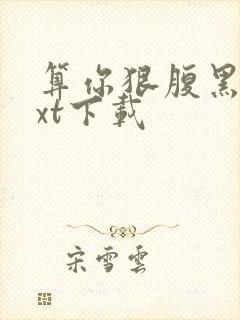 算你狠腹黑
xt下載
宋雪雲